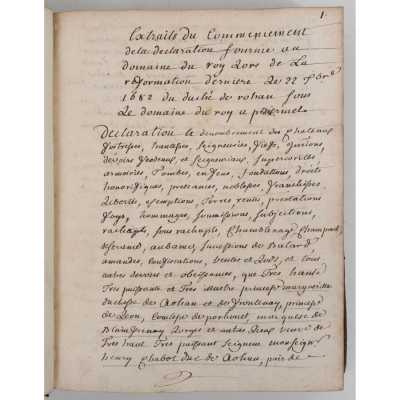 1
Extraits du Commencement
de la declaration fournie au
domaine du Roy Lors de La
reformation derniere Le 22
1682 du duché de rohan sous
Le domaine du roy a
Declaration et denombrement des chateaux
fortresses, hautesses, seigneuries, fiefs,
et seigneuriaux, superiorités
armoiries, Tombes, enfeus, fondations, droits
honorifiques, presences, noblesses, franchises
Libertés, exemptions, Terres, rentes, prestations
foys, hommages, soumissions, subjections,
rachapts, sous rachapts,
desherence, aubaines, successions de Batard
amandes, confiscations, ventes et Lods, et tous
autres devoirs et obeissances, que Tres haute
Tres puissante et Tres illustre princesse marguerite
duchesse de Rohan et de frontenay, princesse
de Leon, Comtesse de porhouet, marquise de
Blain et autres Lieux veuve de
Tres haut Tres puissant seigneur monseigneur
henry chabot duc de Rohan, pair de